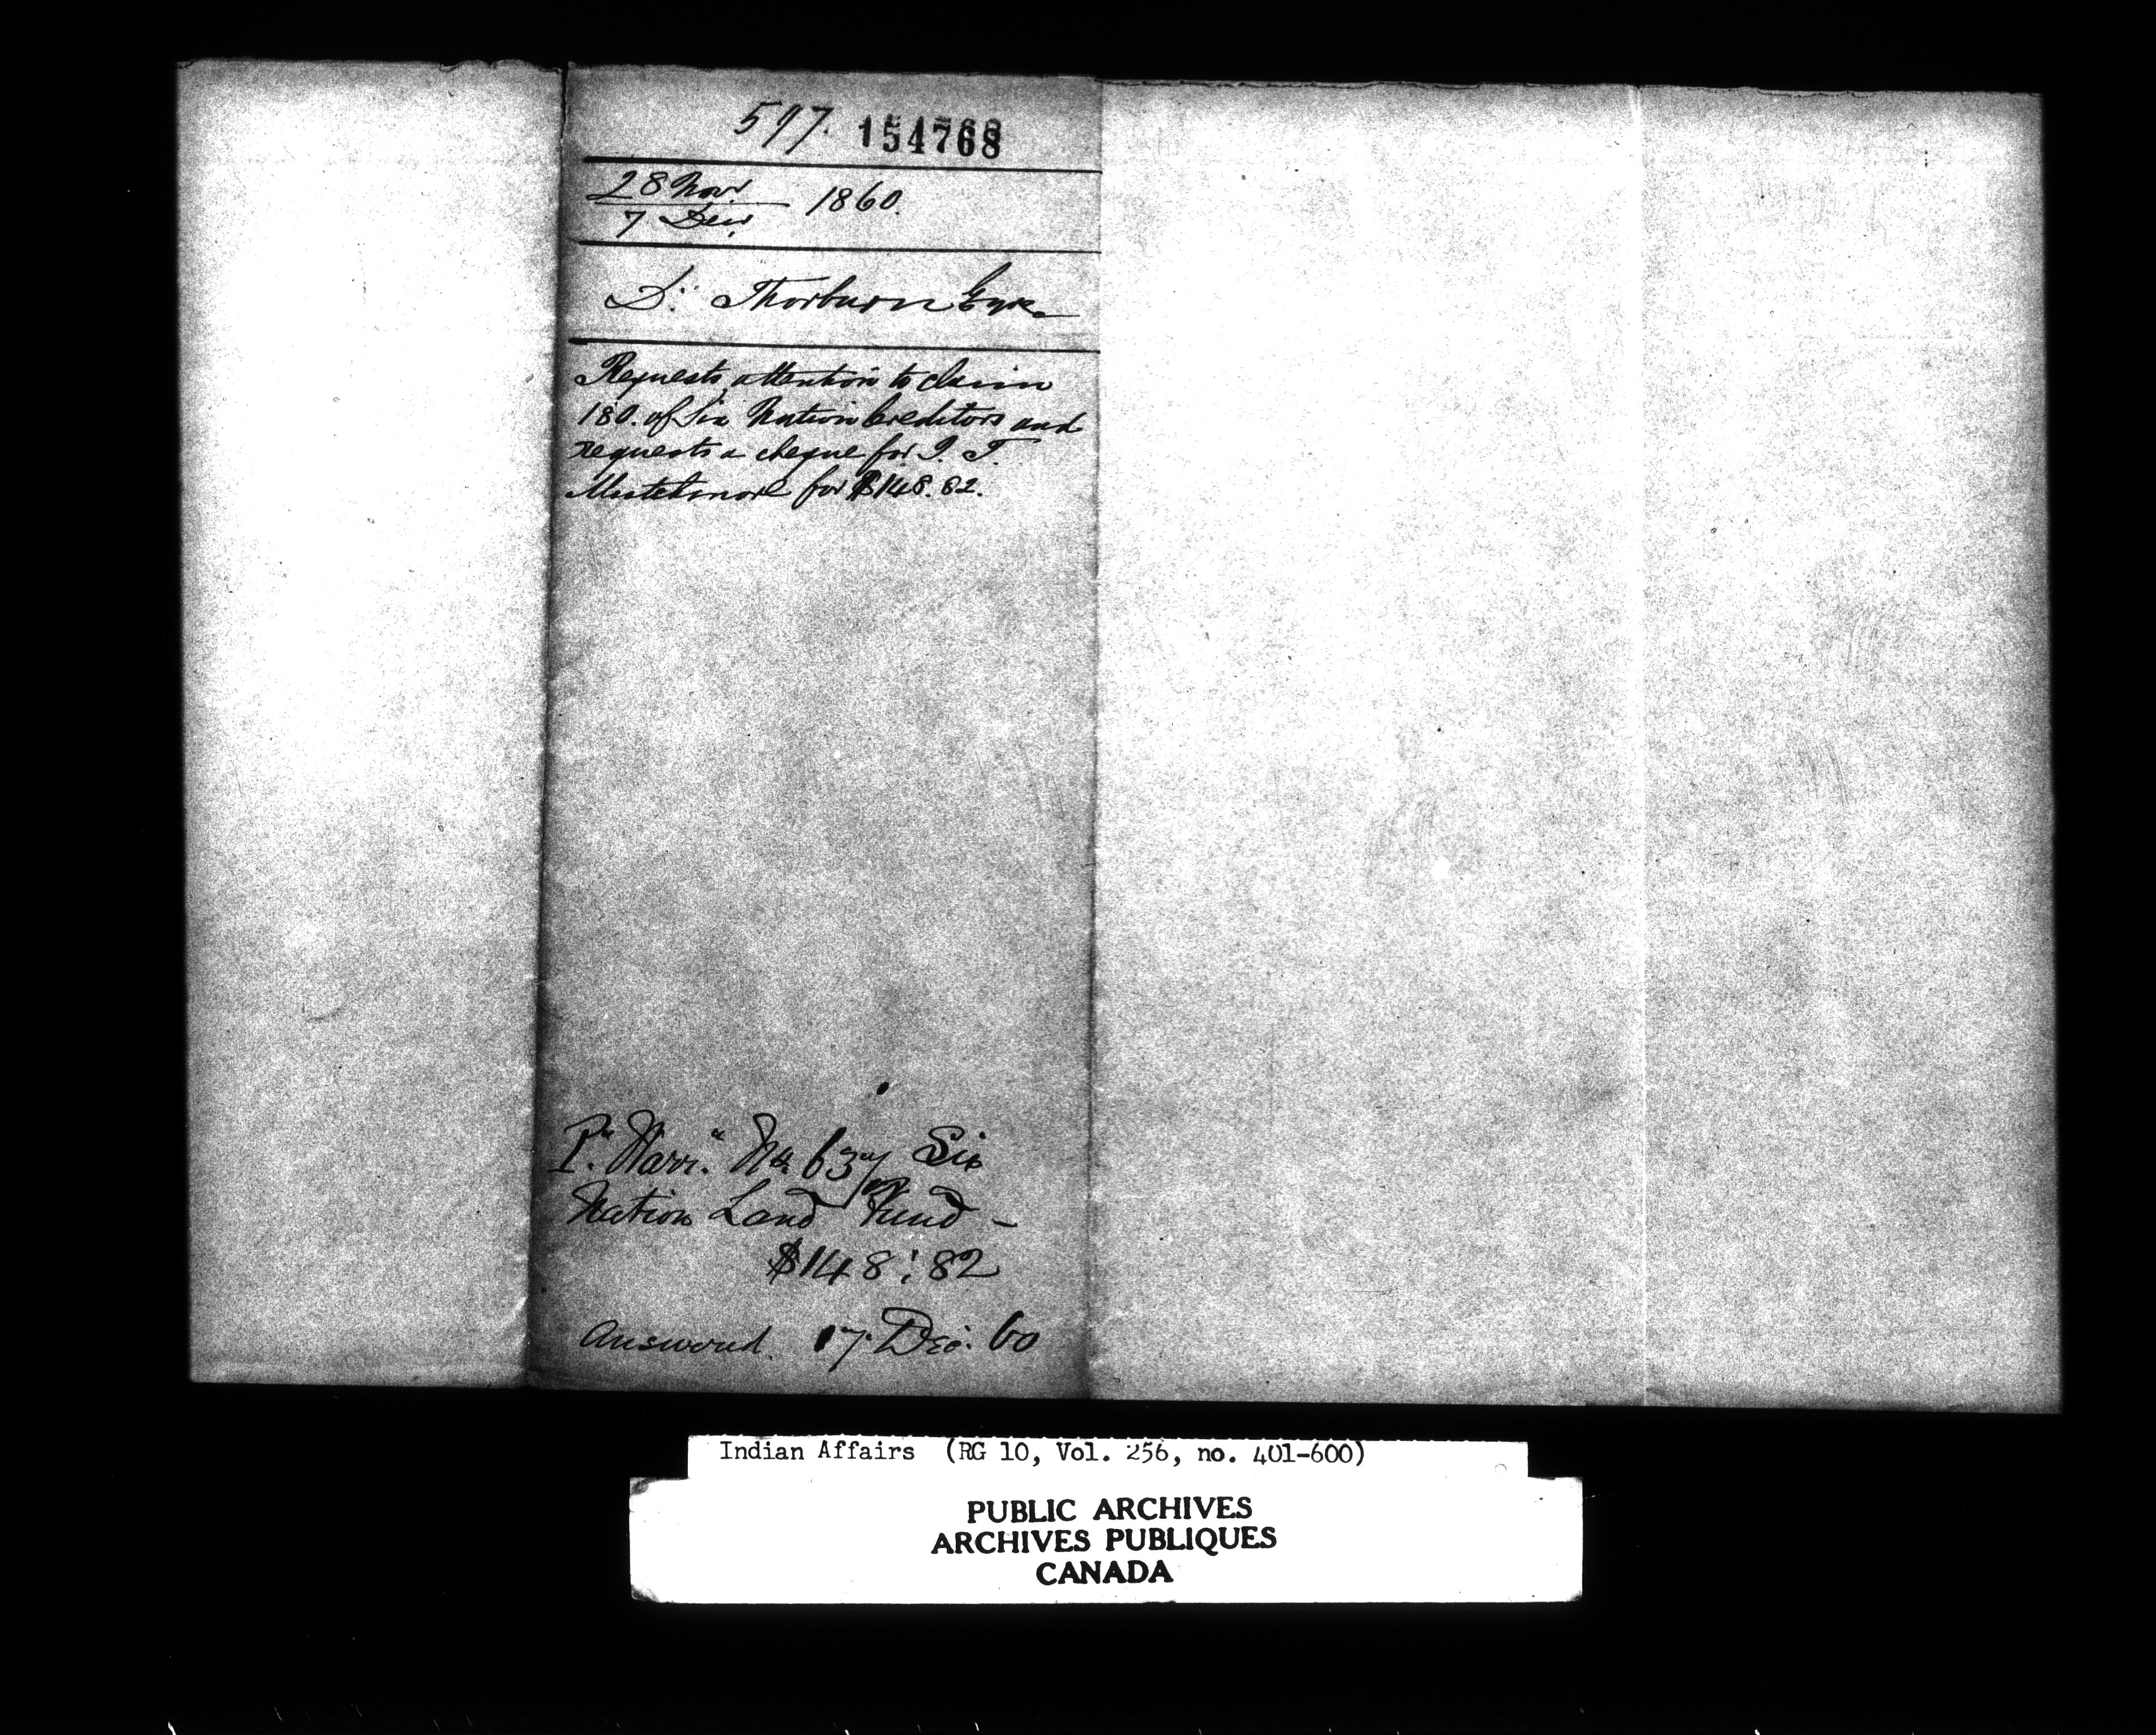 597. 154768
28 Novr
7 Decr 1860.
D. Thorburn Esqre
Requests attention to claim
180. of Six Nation Creditors and
requests a cheque for I. T.
for $148.82.
P. Warr. No. 637 Six
Nation Land Fund -
$148:82
Answered. 17 Dec. 60
Indian Affairs (RG 10, Vol. 256, no. 401-600)
PUBLIC ARCHIVES
ARCHIVES PUBLIQUES
CANADA